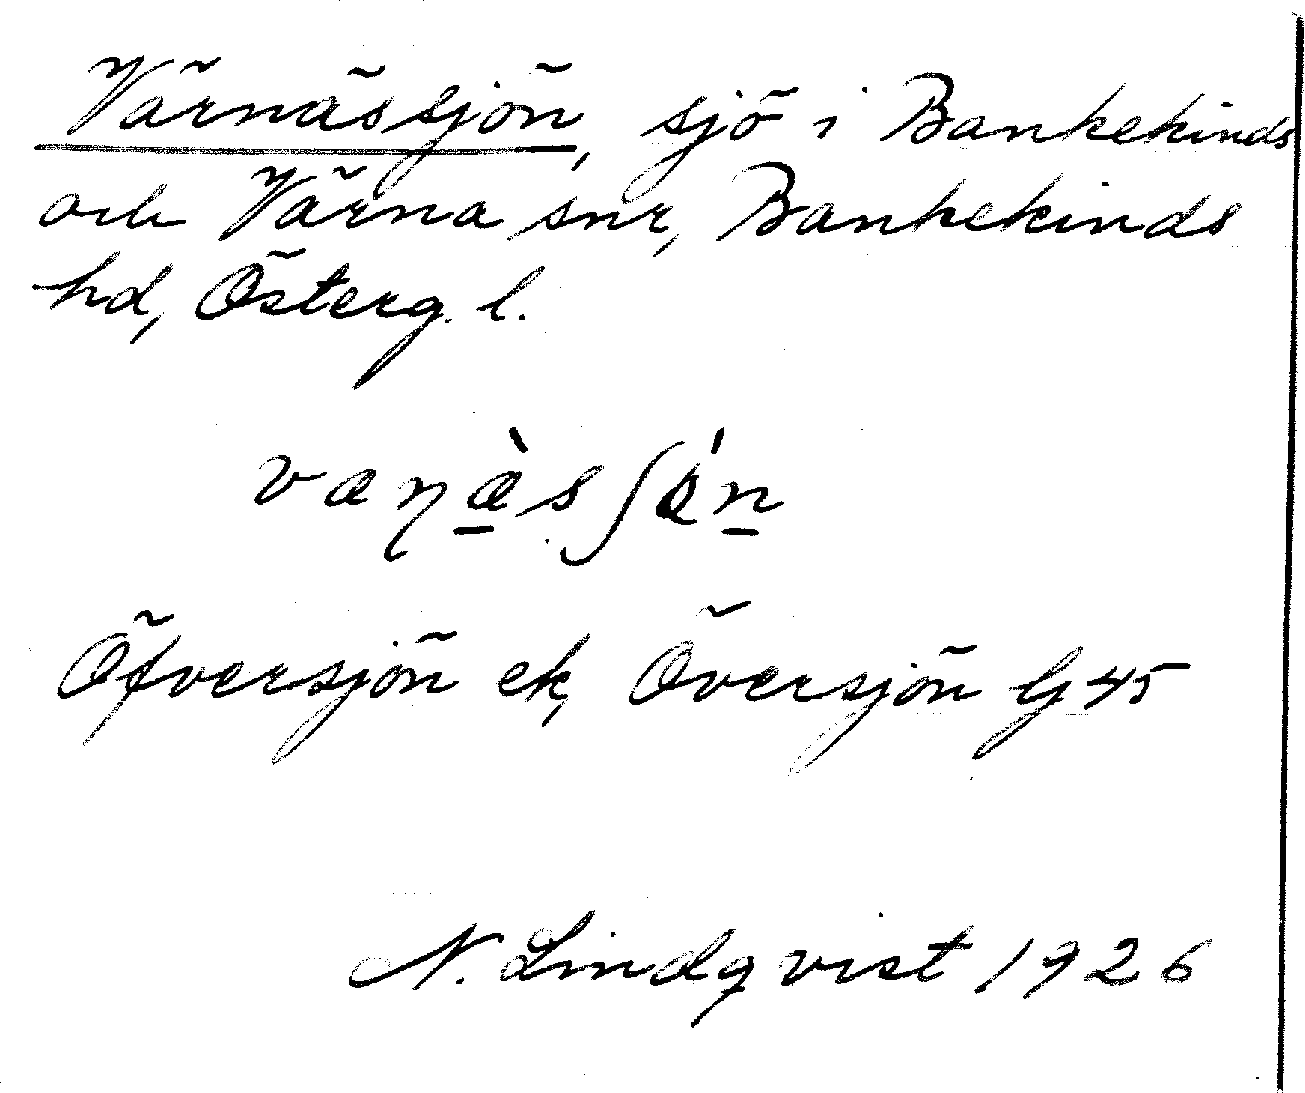 Värnässjön, sjö i Bankekinds
och Värna snr, Bankekinds
hd, Österg. l.
Öfversjön ek, Översjön G 45
N. Lindqvist 1926